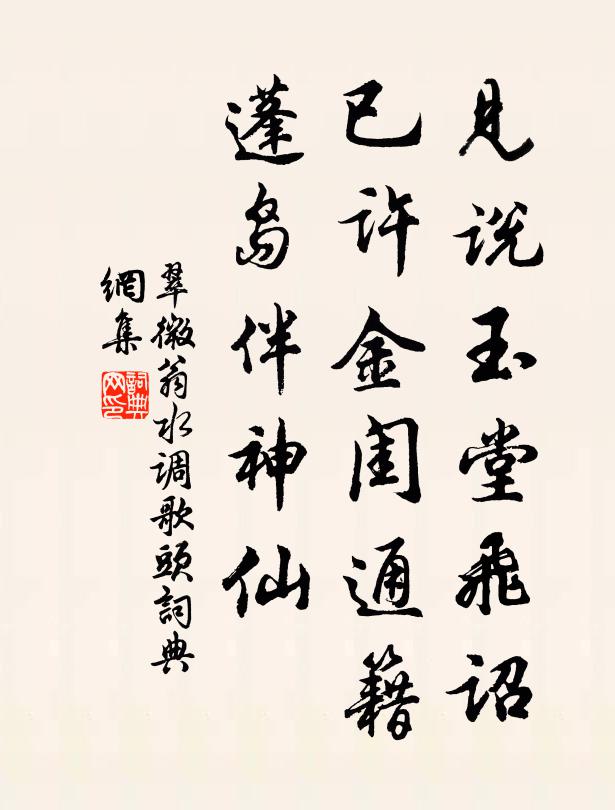 見說玉堂飛詔
已許金閨通籍
蓬島伴神仙
翠微翁水调歌頭詞典
網集
詞典
网印